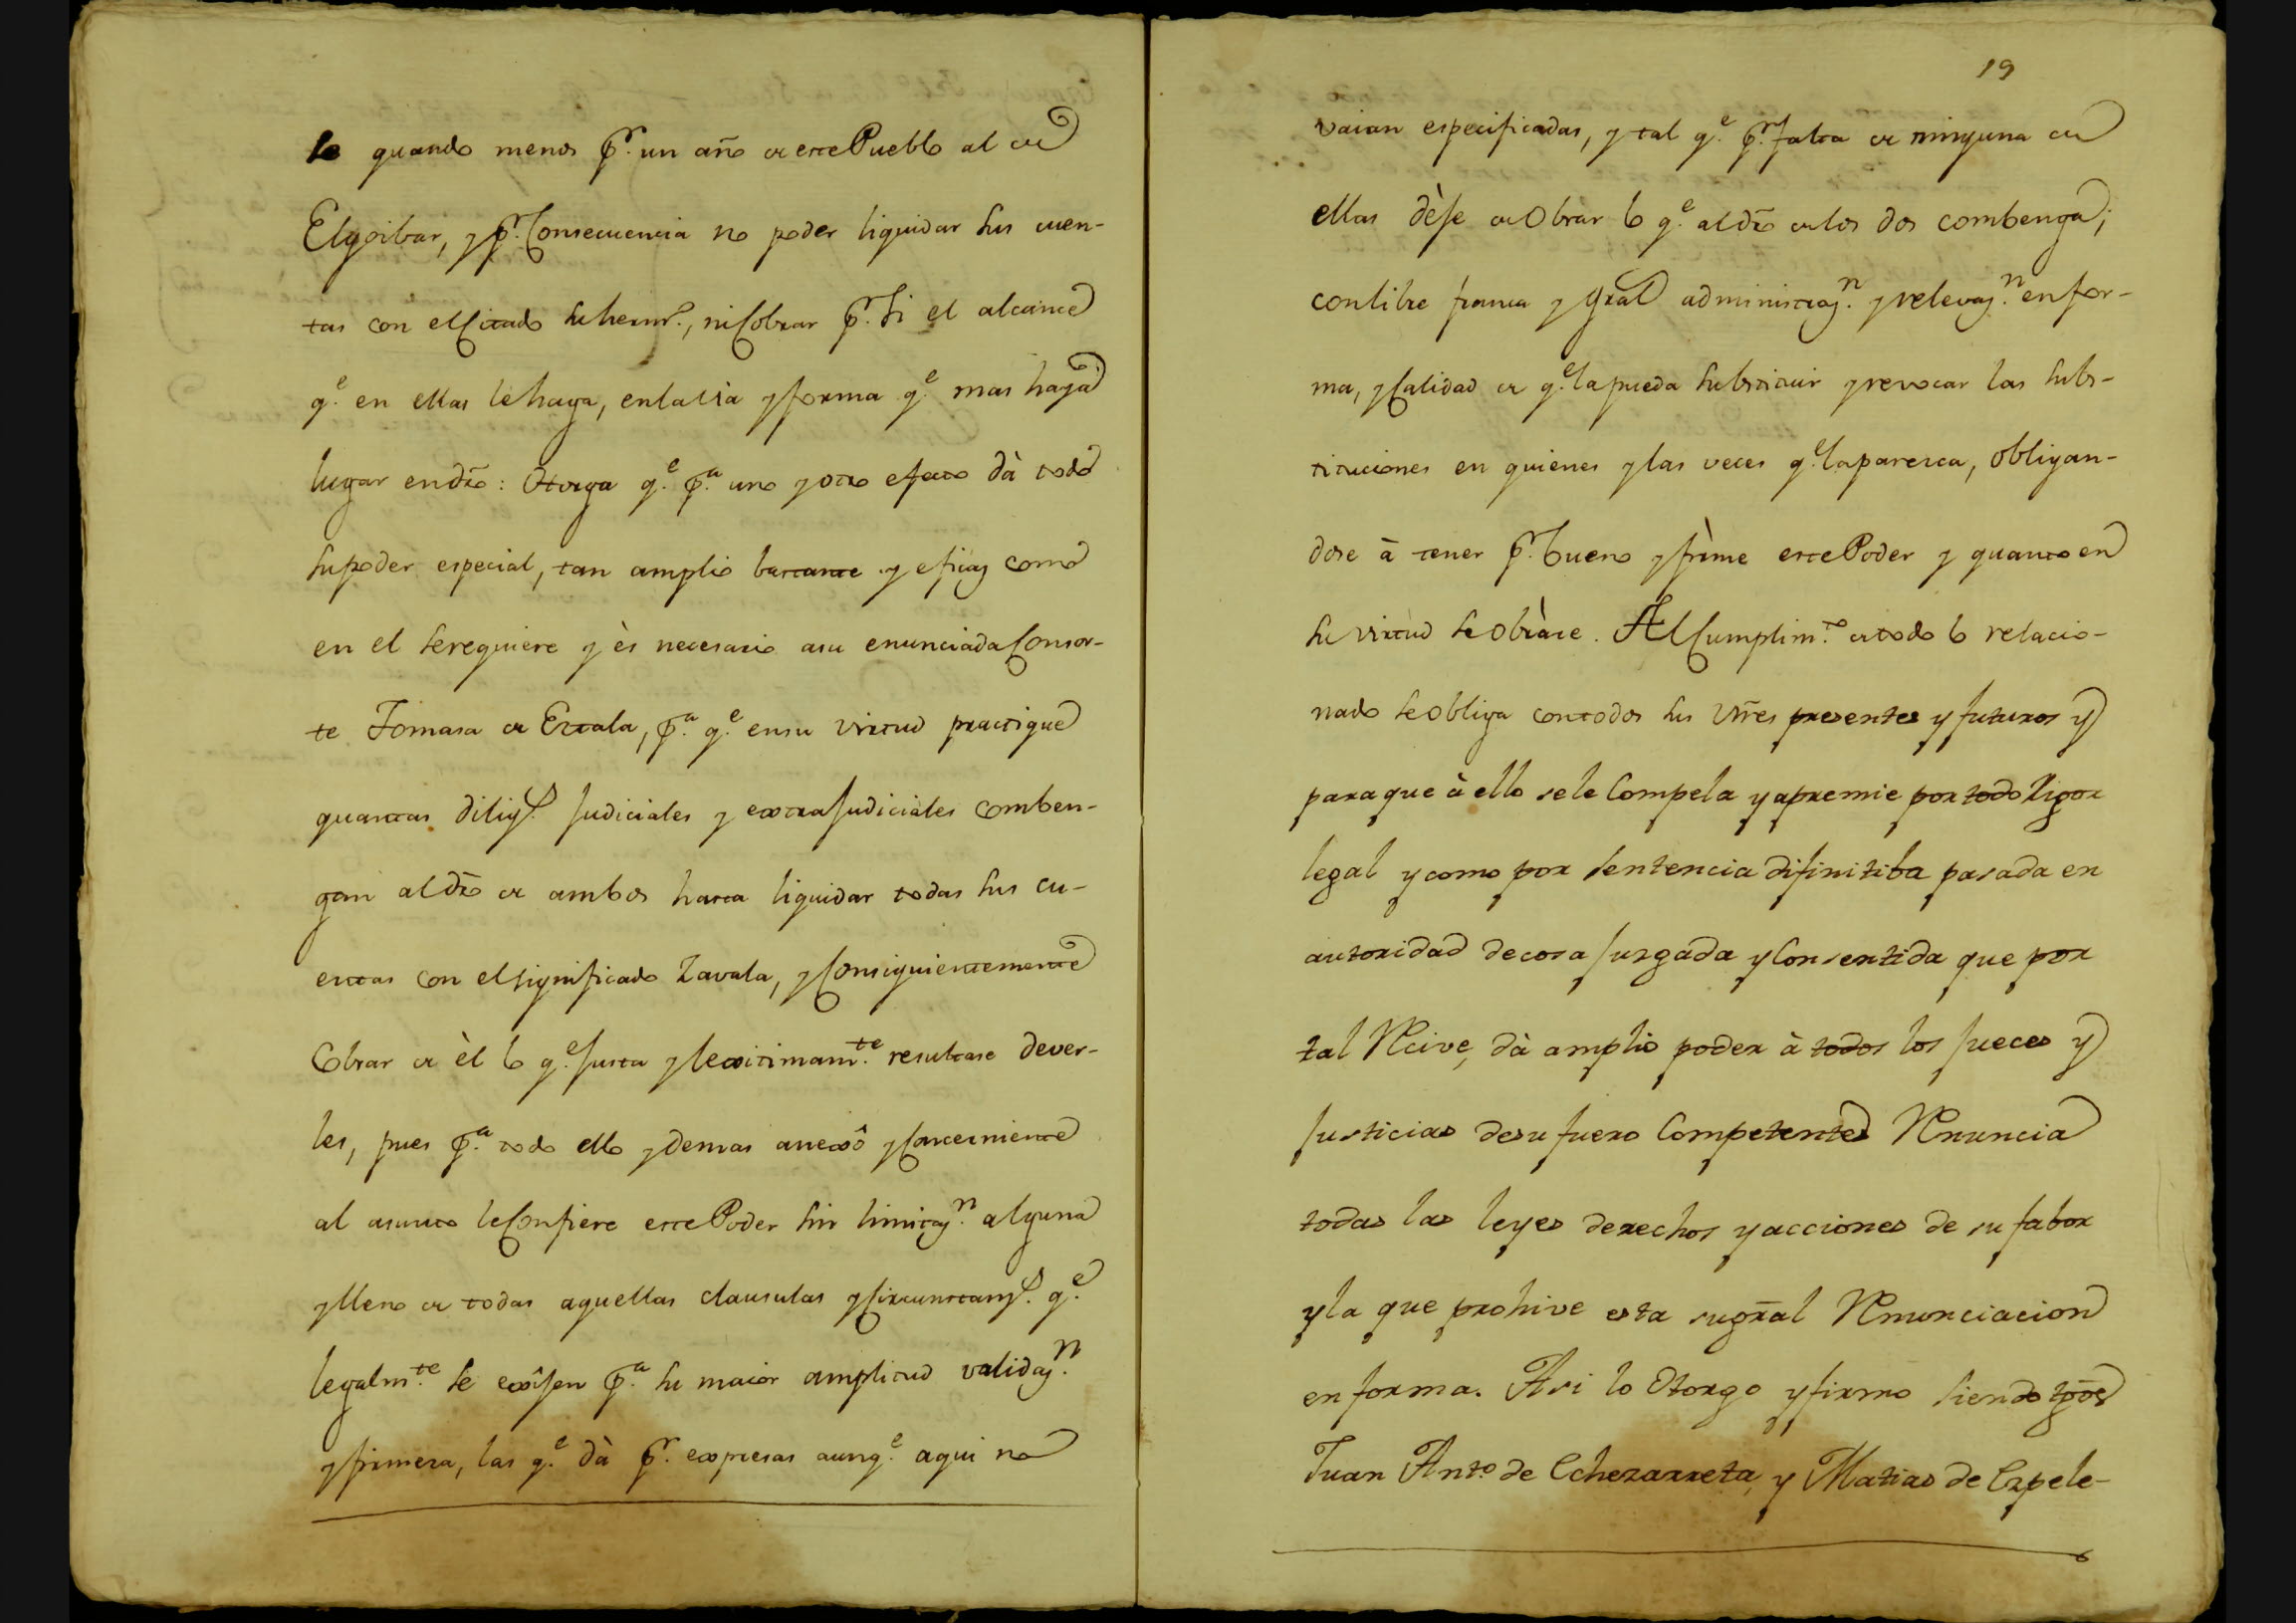 se quando menos pr. un año de este Pueblo al de
Elgoibar, y pr. Consecuencia no poder liquidar sus cuen-
tas con el Citado su herno., ni Cobrar pr. si el alcance
qe. en ellas le haga, en la via y forma qe. mas haya
lugar en dro: Otorga qe. pa. uno y otro efecto dà todo
su poder especial, tan amplio bastante y eficaz como
en el se requiere y ès necesario a su enunciada Consor-
te Tomasa de Eztala, pa. qe. en su virtud practique
quantas diligs. Judiciales y extraJudiciales comben-
gan al dro de ambos hasta liquidar todas sus cu-
entas con el significado Zavala, y Consiguientemente
Cobrar de èl lo qe. Justa y lexitimamte. resultase dever-
les, pues pa. todo ello y demas anexô y Concerniente
al asunto le Confiere este Poder sin limitazn. alguna
y lleno de todas aquellas clausulas y Circunstanzs. qe.
legalmte. se exîjen pa. su maior amplitud validazn.
y firmeza, las qe. dà pr. expresas aunqe. aqui no
19
vaian especificadas, y tal qe. pr. falta de ninguna de
ellas dèje de Obrar lo qe. al dro de los dos combenga;
con libre franca y gral administrazn. y relevazn. en for-
ma, y Calidad de qe. la pueda substituir y revocar las subs-
tituciones en quienes y las veces qe. la paresca, obligan-
dose à tener pr. bueno y firme este Poder y quanto en
su virtud se obràre. Al Cumplimto. de todo lo relacio-
nado se obliga con todos sus Vnes presentes y futuros y
para que à ello se le Compela y apremie por todo Rigor
legal y como por Sentencia difinitiba pasada en
autoridad de cosa Juzgada y Consentida que por
tal Rcive, dà amplio poder à todos los Jueces y
Justicias de su fuero Competentes Rnuncia
todas las leyes derechos y acciones de su fabor
y la que prohive esta su gral Rnunciacion
en forma. Asi lo Otorgo y firmo siendo tgos
Juan Anto. de Echezarreta, y Matias de Ezpele-